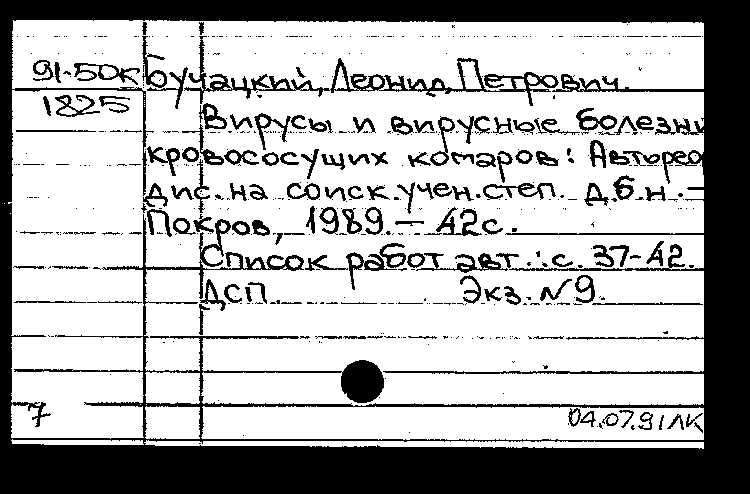 91-50к Бучацкий, Леонид Петрович.
1825
Вирусы и вирусные болезни
кровососущих комаров: Автореф
дис. на соиск. учен. степ. д.б.н. –
Покров, 1989. – 42с.
Список работ авт.: с. 37-42.
ДСП. Экз. №9.
7
04.07.91 ЛК